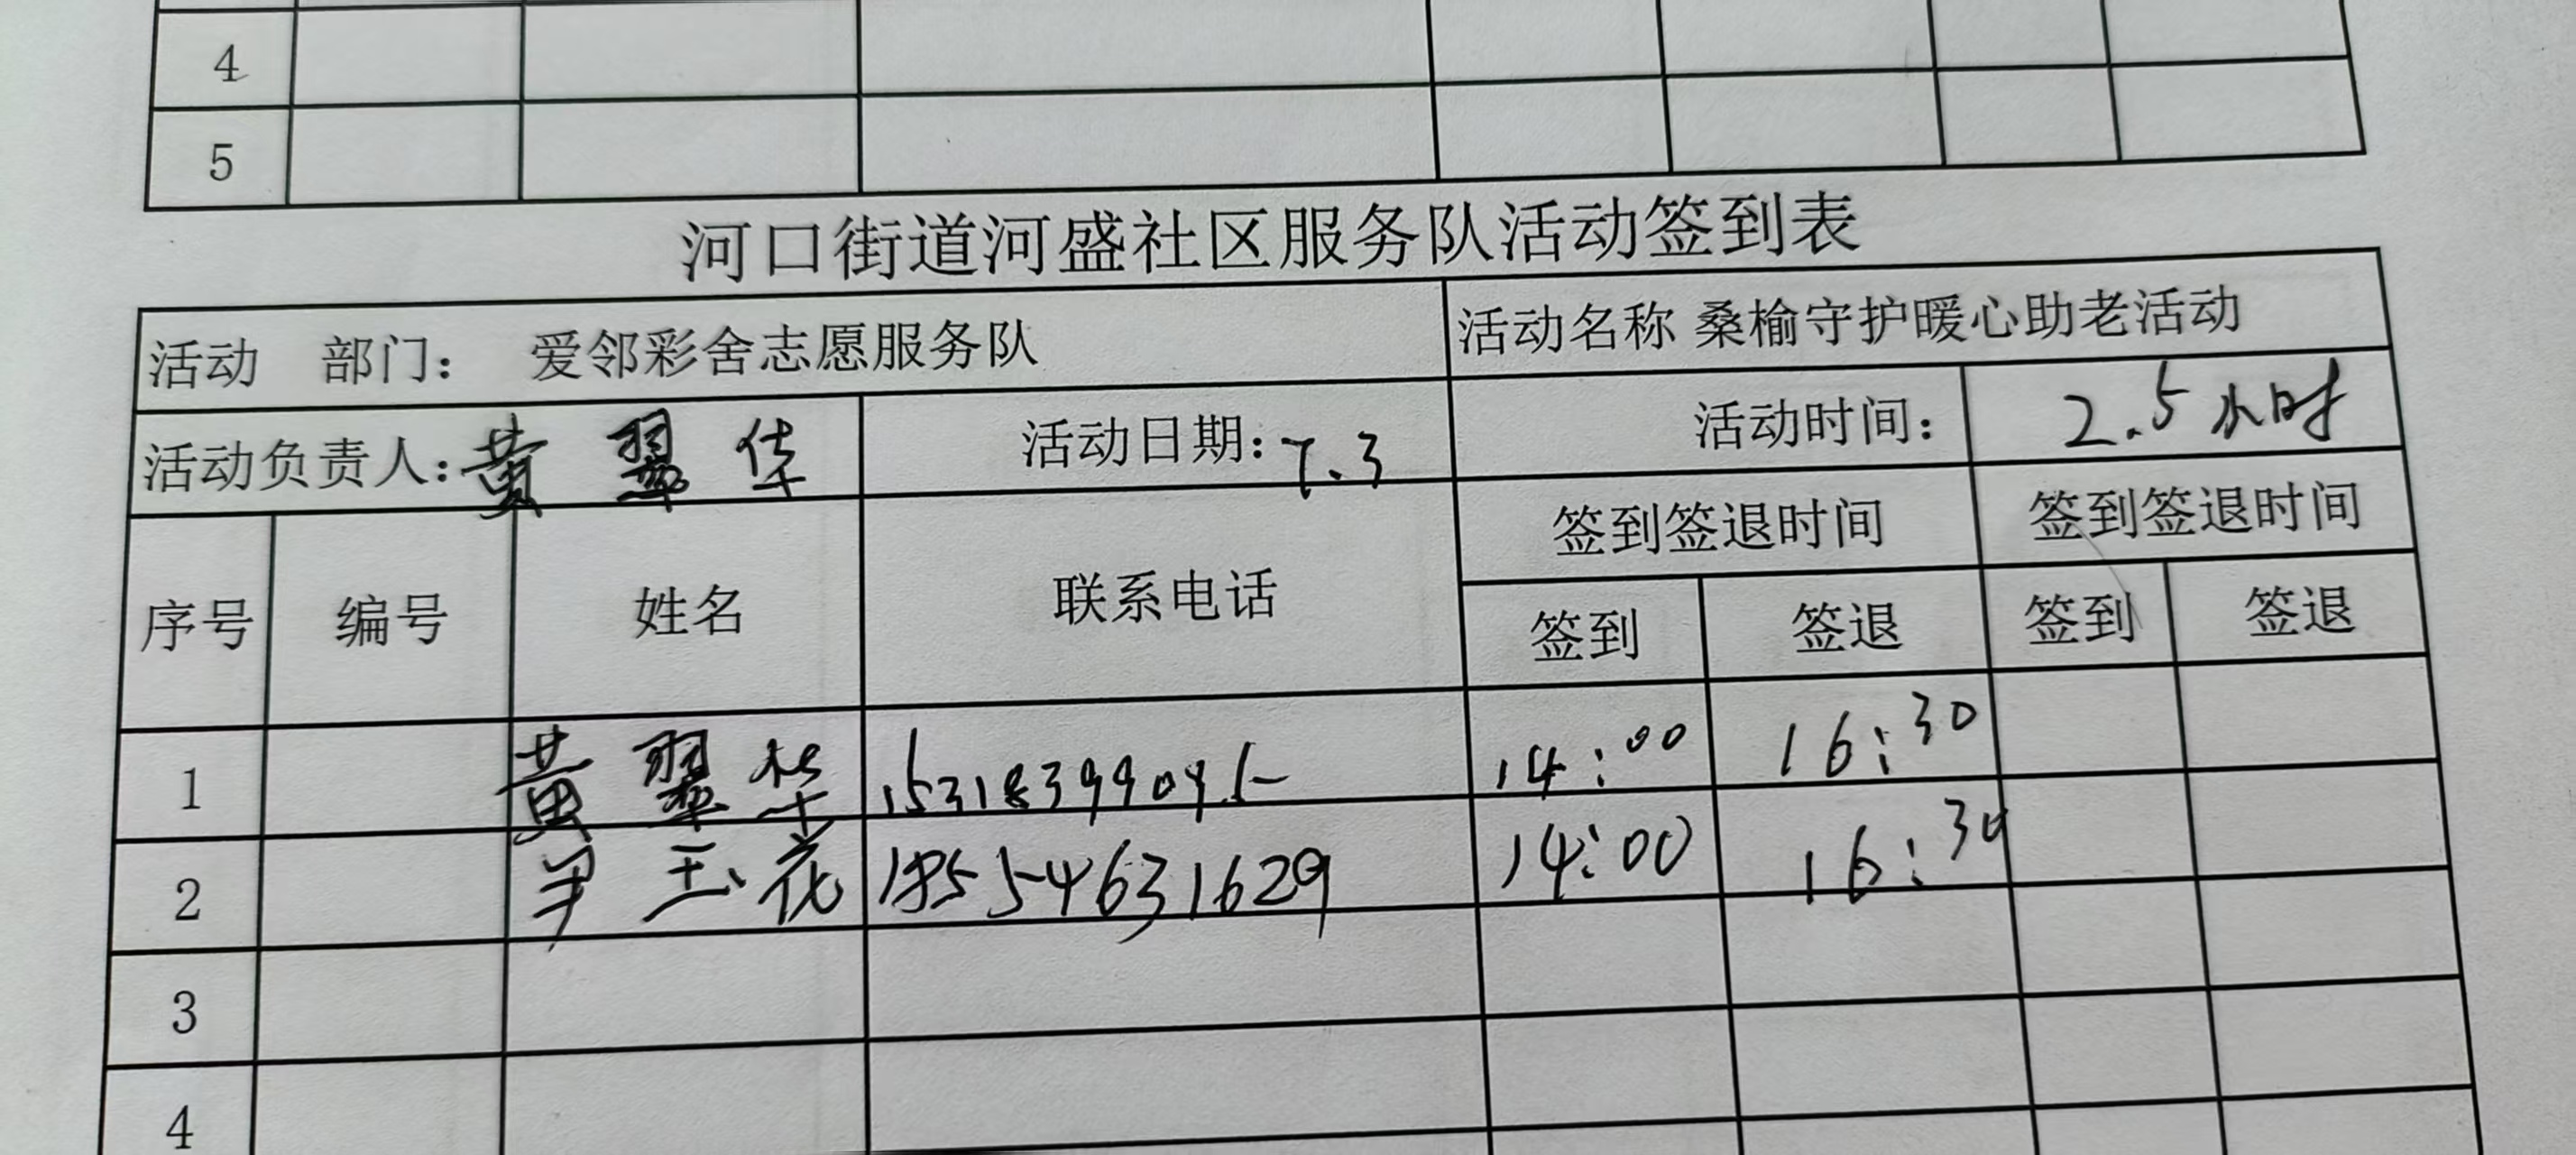 4
5
河口街道河盛社区服务队活动签到表
活动 部门： 爱邻彩舍志愿服务队 活动名称 桑榆守护暖心助老活动
活动负责人：黄翠华 活动日期：7.3 活动时间： 2.5小时
序号 编号 姓名 联系电话 签到签退时间 签到签退时间
签到 签退 签到 签退
1 黄翠华 14:00 16:30
2 玉花 14:00 16:30
3
4